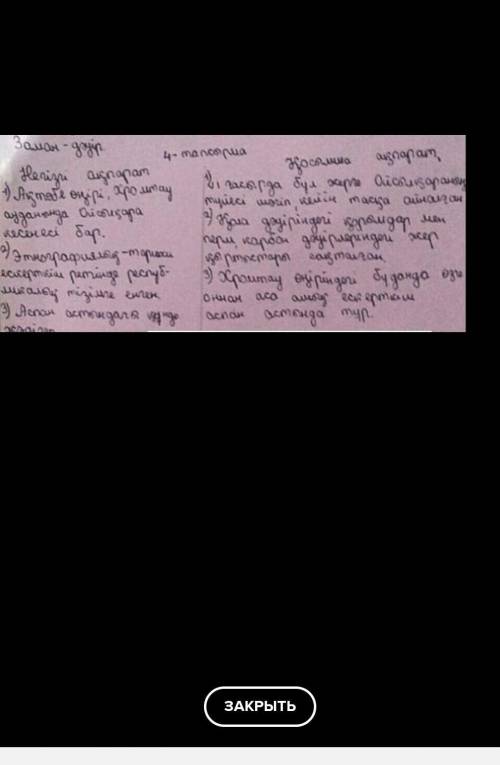 Заман-дәуір
4-тапсырма
Негізгі ақпарат
1) Ақтөбе өңірі, Хромтау
ауданында Айсықара
кесенесі бар.
2) Этнографиялық-тарихи
ескерткіш ретінде респуб-
ликалық тізімге енген
3) Аспан астындағы
Қосымша ақпарат
ғасырда бұл жерге
түйесі шөгіп, кейін тасқа айналған
2) Юра дәуіріндегі құрымдар мен
перм, карбон дәуірлеріндегі жер
қыртыстары сақталған.
3) Хромтау өңіріндегі бұданда өзге
оннан аса ашық ескерткіш
аспан астында тұр.
ЗАКРЫТЬ